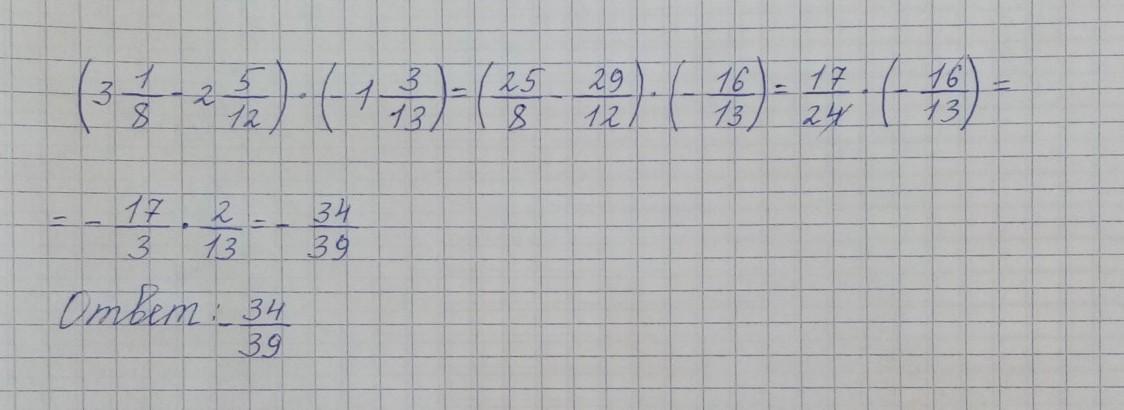 (3 1/8 - 2 5/12) · (-1 3/13) = (25/8 - 29/12) · (- 16/13) = 17/24 · (- 16/13) =
= - 17/3 · 2/13 = - 34/39
Ответ: - 34/39